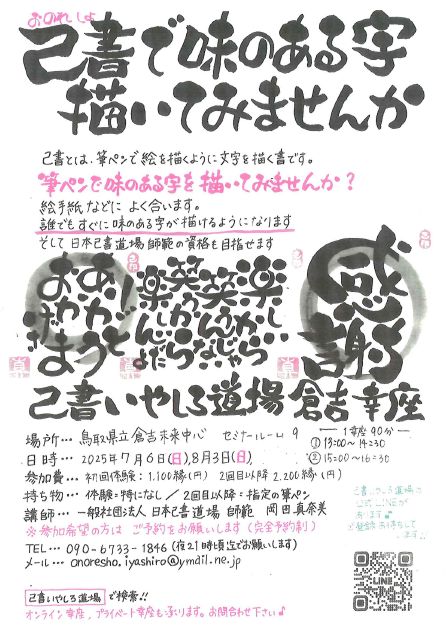 おのれしょ
己書で味のある字
描いてみませんか
己書とは、筆ペンで絵を描くように文字を描く書です。
筆ペンで味のある字を描いてみませんか?
絵手紙などに よく合います。
誰でもすぐに味のある字が描けるようになります
そして 日本己書道場 師範の資格も目指せます
ありがとう
おかげさま
感謝
己書いやしろ道場 倉吉幸座
場所… 鳥取県立倉吉未来中心 セミナールーム9
日時… 2025年7月6日(日),8月3日(日)
1幸座90分
①13:00〜14:30
②15:00〜16:30
参加費… 初回体験:1.100縁(円) 2回目以降 2.200縁(円)
持ち物… 体験:特になし / 2回目以降:指定の筆ペン
講師… 一般社団法人 日本己書道場 師範 岡田真奈美
※参加希望の方は ご予約をお願いします(完全予約制)
TEL… 090-6733-1846(夜21時頃迄でお願いします)
メール… onoresho.iyashiro@ymail.ne.jp
己書いやしろ道場
公式LINEが
あります♪
LINE
己書いやしろ道場 で検索!!
オンライン幸座,プライベート幸座も承ります。お問合わせ下さい♪